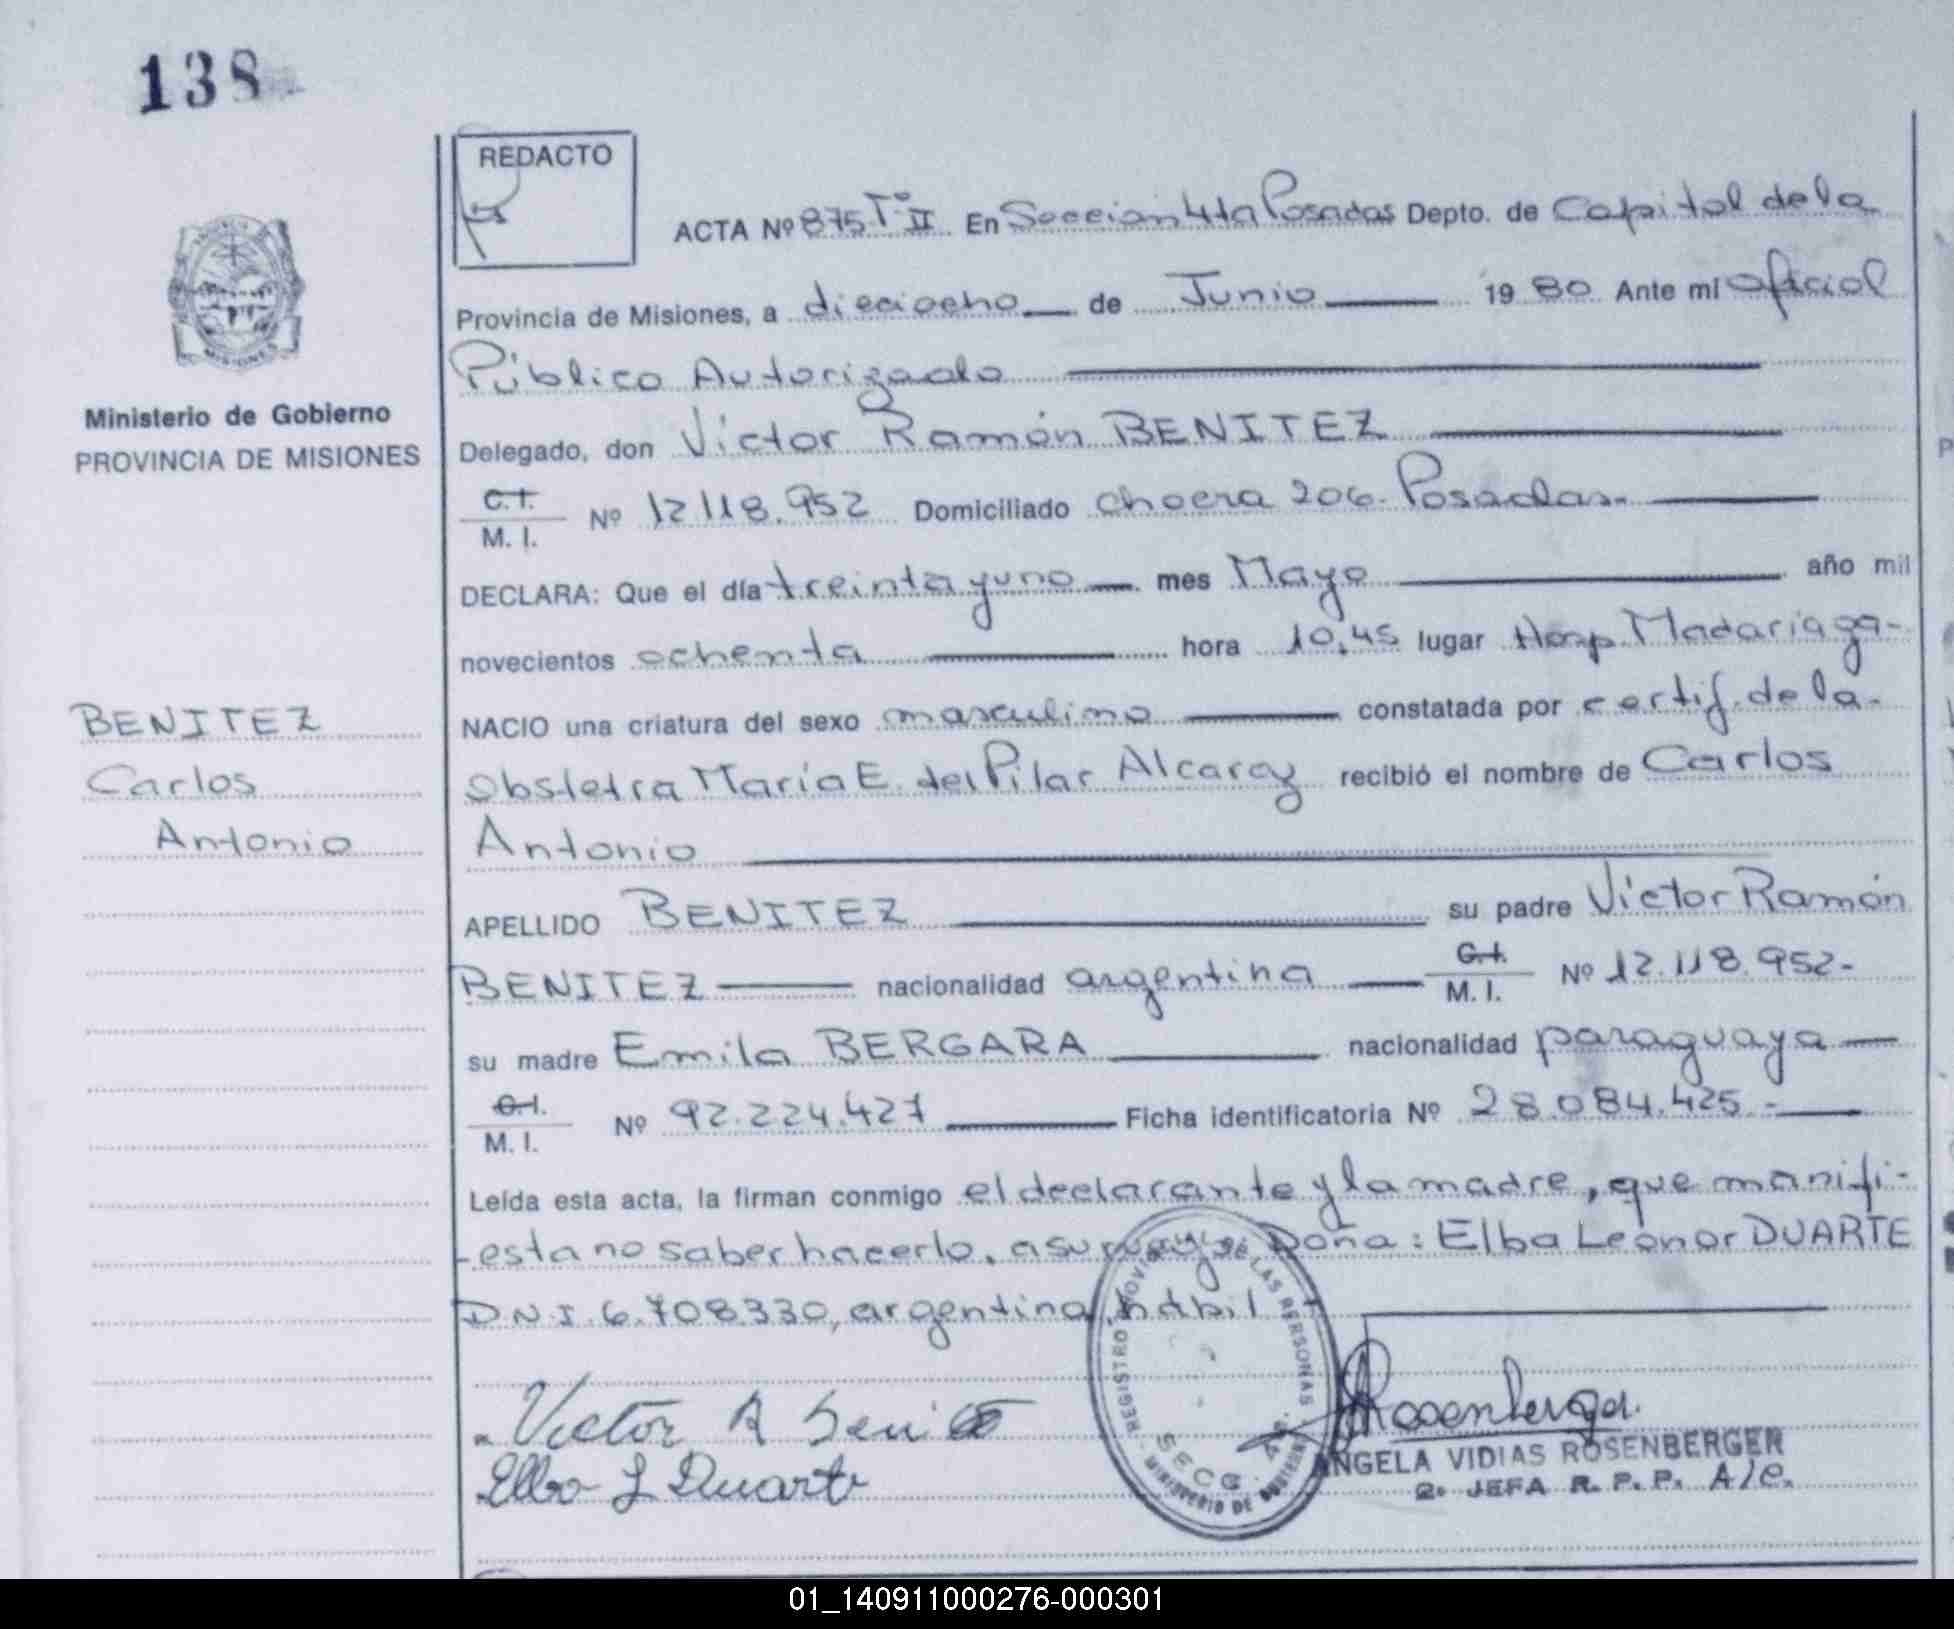 138
REDACTO
ACTA Nº 875 Tº II En Seccion 4ta Posadas Depto. de Capital de la
Provincia de Misiones, a dieciocho de Junio 1980 Ante mi Oficial
Público Autorizado
Ministerio de Gobierno
PROVINCIA DE MISIONES
Delegado, don Víctor Ramón BENITEZ
C.I.
M. I. Nº 12118.952 Domiciliado 206. Posadas.
DECLARA: Que el día treinta y uno mes Mayo año mil
novecientos ochenta hora 10,45 lugar Hosp Madariaga-
NACIO una criatura del sexo masculino constatada por certif. de la
Obstetra María E. del Pilar Alcaraz recibió el nombre de Carlos
Antonio
BENITEZ
Carlos
Antonio
APELLIDO BENITEZ su padre Víctor Ramón
BENITEZ nacionalidad argentina C.I.
M. I. Nº 12.118.952-
su madre Emila BERGARA nacionalidad paraguaya
C.I.
M. I. Nº 92.224.427 Ficha identificatoria Nº 28.084.425.-
Leída esta acta, la firman conmigo el declarante y la madre, que manifi-
-esta no saber hacerlo, a su ruego Doña: Elba Leonor DUARTE
D.N.I. 6.708.330, argentina, hábil
Victor R Benitez
Elba L Duarte
REGISTRO PROVINCIAL DE LAS PERSONAS
MINISTERIO DE GOBIERNO
SECC. 4a.
Rosenberger
ANGELA VIDIAS ROSENBERGER
2º JEFA R. P. P. A/C.
01_140911000276-000301